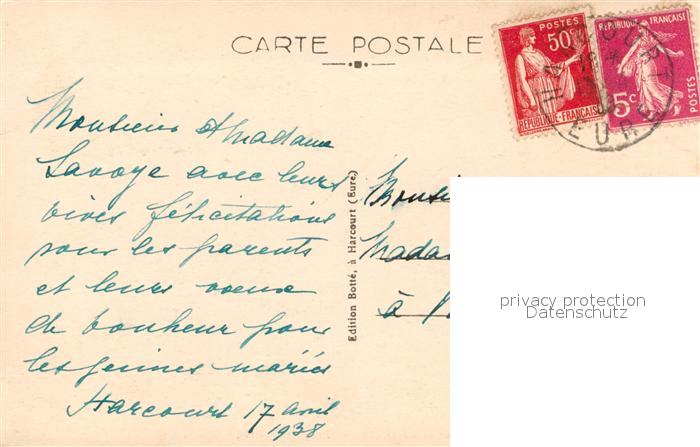 CARTE POSTALE
POSTES
50c
REPUBLIQUE-FRANCAISE
REPUBLIQUE FRANÇAISE
5c
POSTES
HARCOURT
EURE
Monsieur & Madame
Lavoye avec leurs
vives félicitations
pour les parents
et leurs voeux
de bonheur pour
les jeunes mariés
Harcourt 17 avril
1938
Edition Botté, à Harcourt (Eure.)
Madam
à
privacy protection
Datenschutz